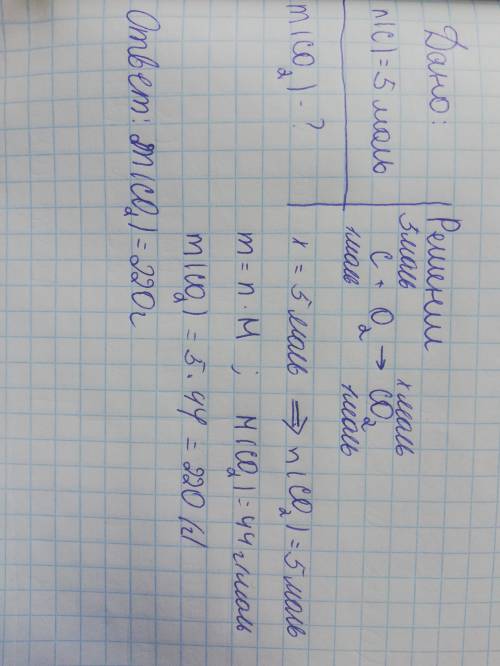 Дано:
n(C) = 5 моль
m(CO₂) - ?
Решении
5 моль x моль
C + O₂ → CO₂
1 моль 1 моль
x = 5 моль ⇒ n(CO₂) = 5 моль
m = n · M ; M(CO₂) = 44 г/моль
m(CO₂) = 5 · 44 = 220 (г)
Ответ: m(CO₂) = 220 г